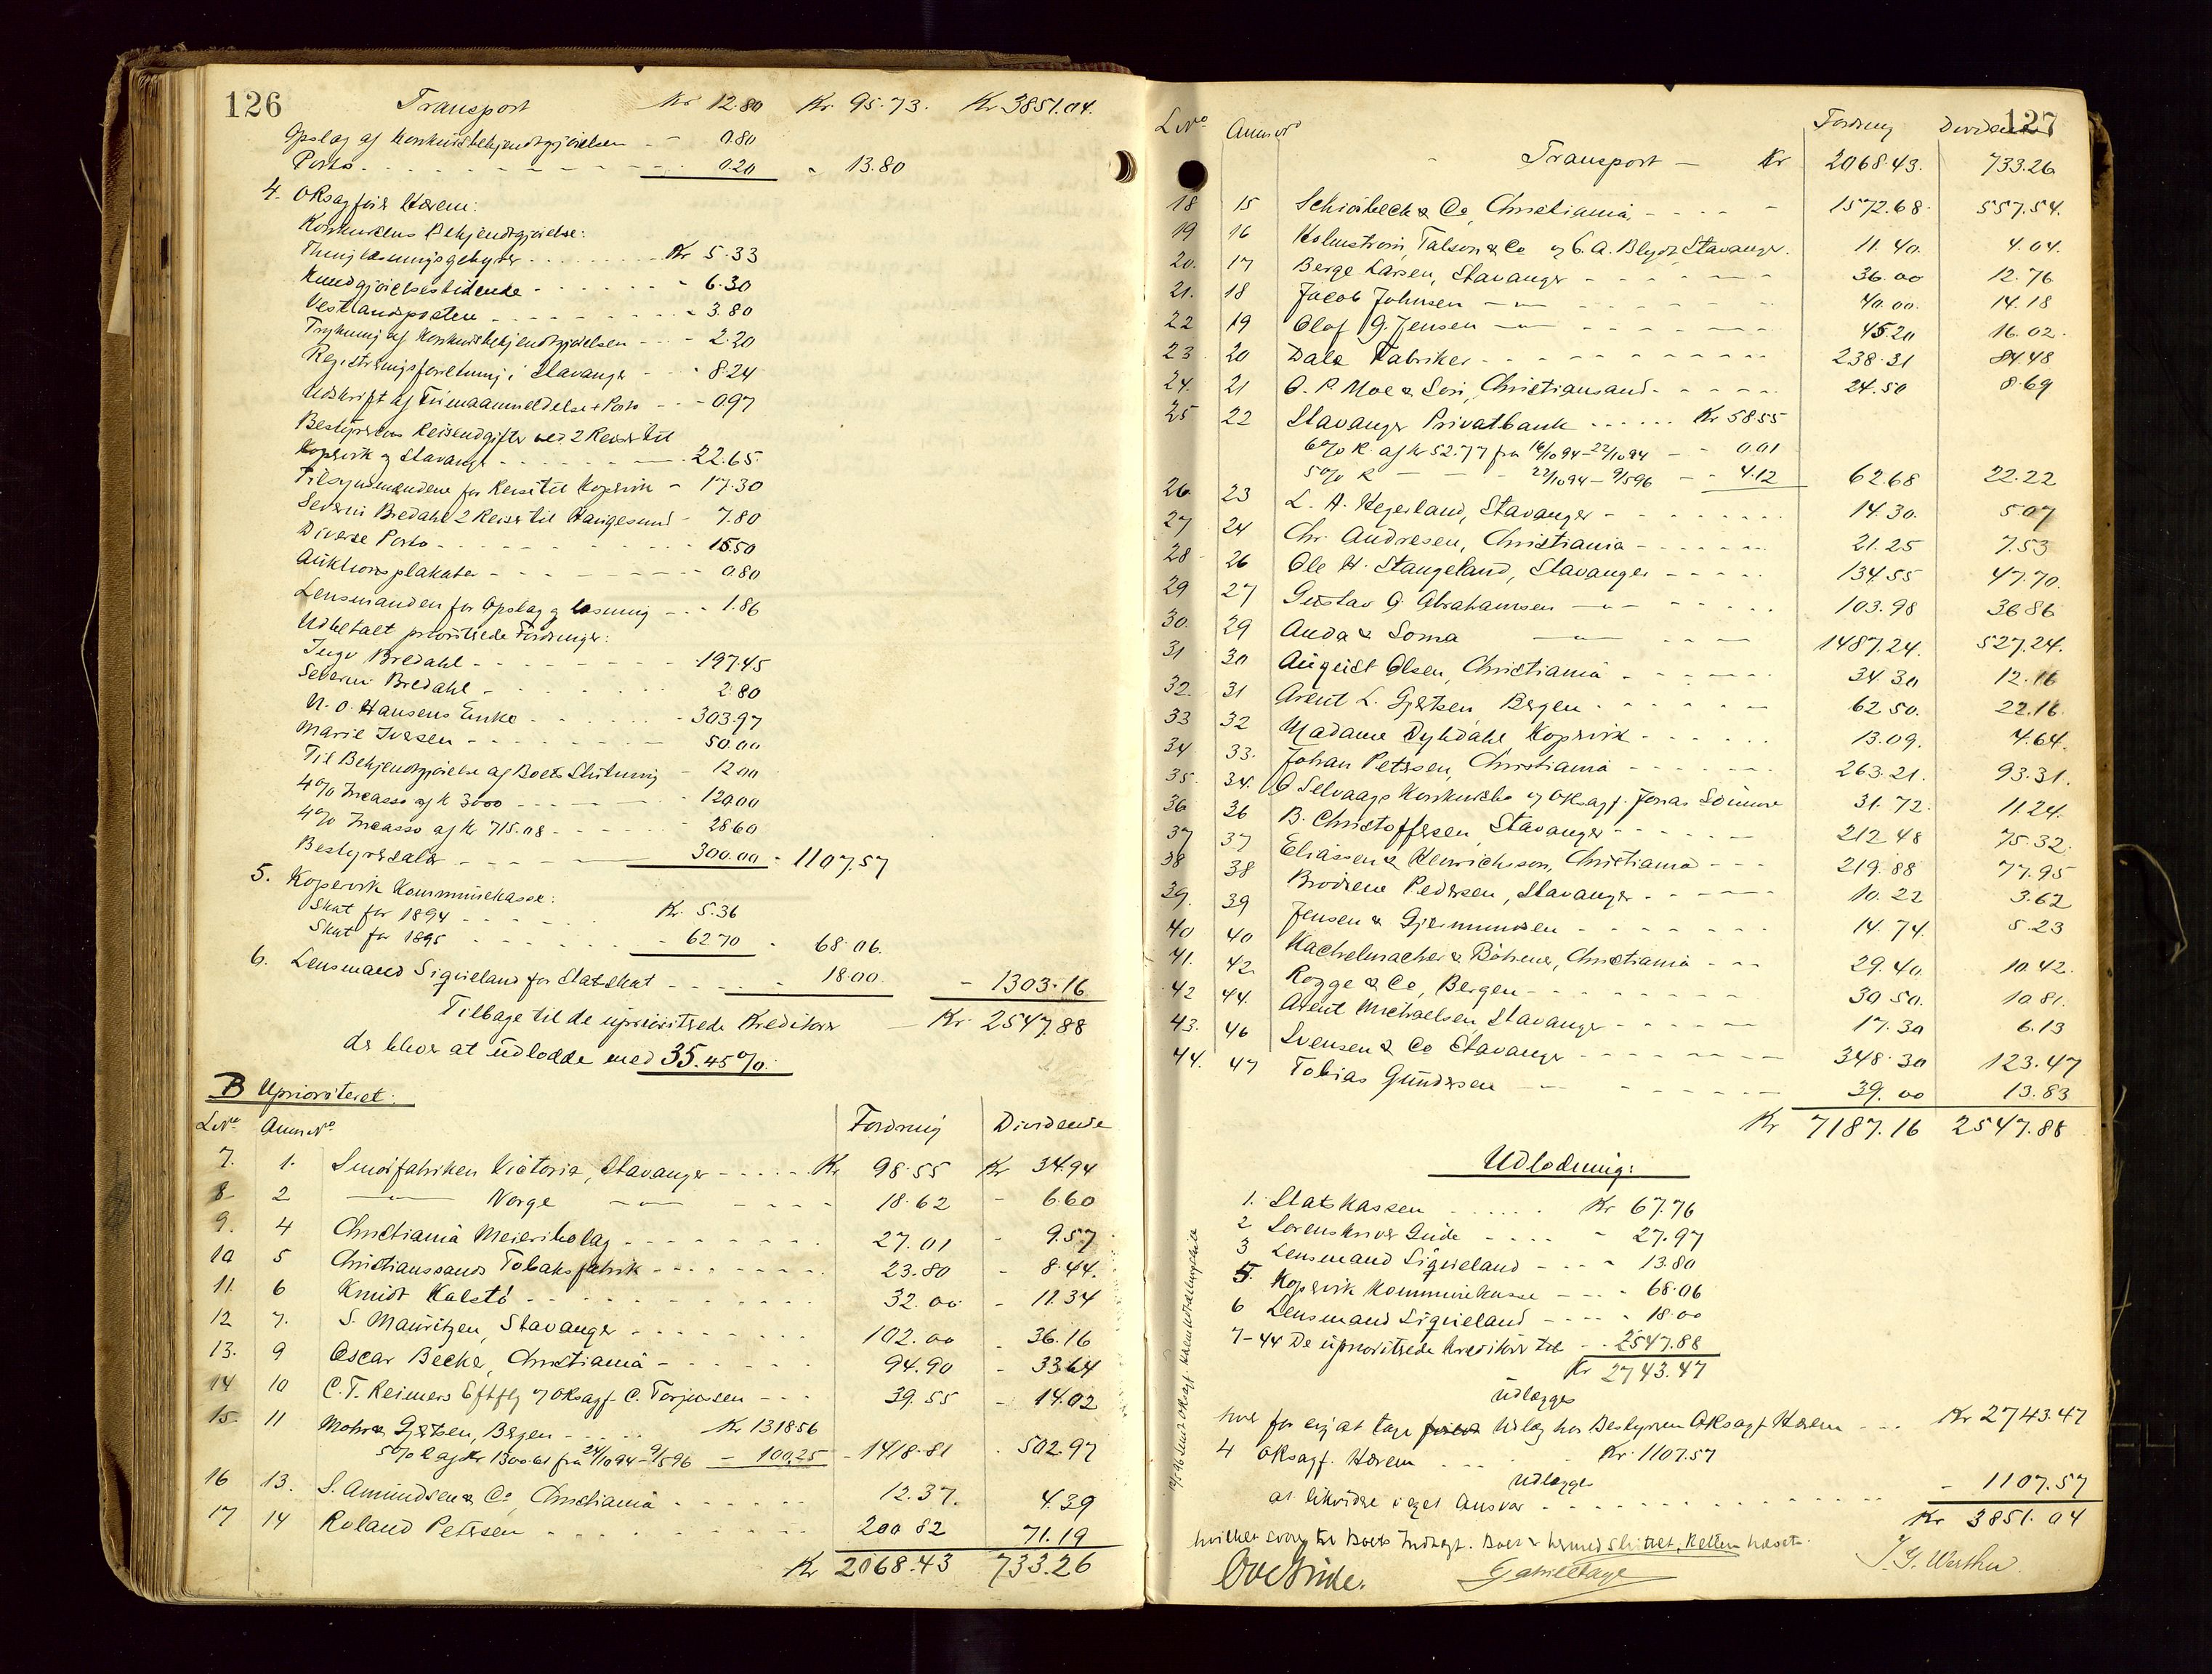 126
Transport Kr 12.80 Kr. 95.73. Kr 3851.04.
Opslag af Konkursbekjendtgjørelsen - 0.80
Porto - 0.20 - 13.80
4. OKsagfører Hærem:
Konkursens Bekjendtgjørelse:
Thinglæsningsgebyrer Kr 5.33
Kundgjørelsestidende - 6.30
Vestlandsposten - 3.80
Trykning af Konkursbekjendtgjørelsen - 2.20
Registreringsforretning i Stavanger - 8.24
Udskrift af Firmaanmeldelse + Porto - 0.97
Bestyrerens Reiseudgifter ved 2 Reiser til
Kopervik og Stavanger - 22.65
Tilsynsmændene for Reise til Kopervik - 17.30
Severin Bredahl 2 Reiser til Haugesund - 7.80
Diverse Porto - 15.50
Auktionsplakater - 0.80
Lensmanden for Opslag og læsning - 1.86
Udbetalt prioriterede Fordringer:
Ingv Bredahl - 197.45
Severin Bredahl - 2.80
N. O. Hansens Enke - 303.97
Marie Iversen - 50.00
Til Bekjendtgjørelse af Boets Slutning - 12.00
4% Incasso af K 3000 - 120.00
4% Incasso af Kr. 715.08 - 28.60
Bestyrersalær - 300.00 - 1107.57
5. Kopervik Kommunekasse:
Skat for 1894 Kr. 5.36
Skat for 1895 - 62.70 - 68.06.
6. Lensmand Sigveland for Statsskat - 18.00. - 1303.16
Tilbage til de uprioriterede Kreditorer - Kr. 2547.88
der bliver at udlodde med 35.45%.
B Uprioriteret:
LNo AnmNo Fordring Dividende
7. 1. Smørfabriken Victoria, Stavanger Kr 98.55 Kr 34.94
8 2 -"- Norge -"- 18.62 - 6.60
9. 4 Christiania Meieribolag 27.01 - 9.57
10 5 Christianssands Tobaksfabrik 23.80 - 8.44.
11. 6 Knudt Kalstö 32.00 - 11.34
12 7. S. Mauritzen, Stavanger 102.00 - 36.16
13. 9 Oscar Becker, Christiania 94.90 - 33.64
14 10 C. T. Reimers Eftflg v/ OKsagf. C. Torjusen 39.55 - 14.02
15. 11 Mohr & Gjertsen, Bergen Kr 1318.56
5% R af Kr 1300.61 fra 24/10 94 - 9/5 96 - 100.25 - 1418.81 - 502.97
16 13. S. Amundsen & Co, Christiania 12.37. 4.39
17 14 Roland Petersen 200.82 71.19
Kr 2068.43 733.26
127
LNo AnmNo Fordring Dividende
Transport - Kr 2068.43. 733.26
18 15 Schiörbeck & Co, Christiania 1572.68 557.54.
19 16 Holmström, Talson & Co v/ C. A. Blydt Stavanger. 11.40. 4.04.
20. 17 Berge Larsen, Stavanger 36.00 12.76
21. 18 Jacob Johnsen -"- 40.00. 14.18
22 19 Olaf G. Jensen -"- 45.20 16.02.
23 20 Dale Fabriker 238.31 84.48
24. 21 O. P. Moe & Søn, Christiansand 24.50 8.69
25 22 Stavanger Privatbank Kr 58.55
6% R. af Kr 52.77 fra 16/10 94 - 22/10 94 - 0.01
5% R - 22/10 94 - 9/5 96 - 4.12 62.68 22.22
26 23 L. A. Hegerland, Stavanger 14.30. 5.07
27 24 Chr. Andresen, Christiania 21.25 7.53
28 26 Ole H. Stangeland, Stavanger 134.55 47.70.
29 27 Gustav A. Abrahamsen -"- 103.98 36.86
30. 29 Anda & Soma -"- 1487.24. 527.24.
31 30 August Olsen, Christiania 34.30 12.16
32. 31 Arent L. Gjertsen, Bergen 62.50. 22.16
33 32 Madame Dybdahl Kopervik 13.09. 4.64.
34 33. Johan Petersen, Christiania 263.21. 93.31.
35. 34. O Selvaags Konkursbo v/ OKsagf. Jonas Sömme 31.72. 11.24.
36 36 B. Christoffersen, Stavanger 212.48 75.32.
37 37 Eliassen & Henrichsen, Christiania 219.88 77.95
38 38 Brödrene Pedersen, Stavanger 10.22 3.62
39. 39 Jensen & Gjermundsen 14.74. 5.23
40 40 Kachelmacher & Böhmer, Christiania 29.40. 10.42.
41. 42 Rogge & Co, Bergen 30.50. 10.81.
42 44. Arent Michaelsen, Stavanger 17.30 6.13
43. 46 Svensen & Co Stavanger 348.30 123.47
44. 47 Tobias Gundersen -"- 39.00 13.83
Kr 7187.16 2547.88
Udlodning:
1. Statskassen Kr 67.76
2 Sorenskriver Gude - 27.97
3 Lensmand Sigveland - 13.80
5. Kopervik Kommunekasse - 68.06
6 Lensmand Sigveland - 18.00
7-44 De uprioriterede Kreditorer tils - 2547.88
Kr 2743.47
udlægges
hver for sig at tage Udlæg hos Bestyreren OKsagf. Hærem Kr 2743.47
4 OKsagf. Hærem Kr. 1107.57
udlægges
at likvidere i eget Ansvar - 1107.57
Kr 3851.04
hvilket svarer til Boets Indtægt. Boet er hermed sluttet, Retten hævet.
Ove Gude.